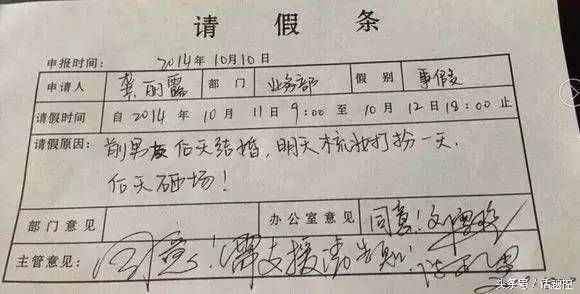 请假条
申报时间： 2014年10月10日
申请人 龚丽露 部门 业务部 假别 事假
请假时间 自2014年10月11日9:00至10月12日18:00止
请假原因： 前男友后天结婚，明天梳妆打扮一天，
后天砸场！
部门意见 办公室意见 同意！
主管意见： 同意！需支援请告知！
头条号/话题图